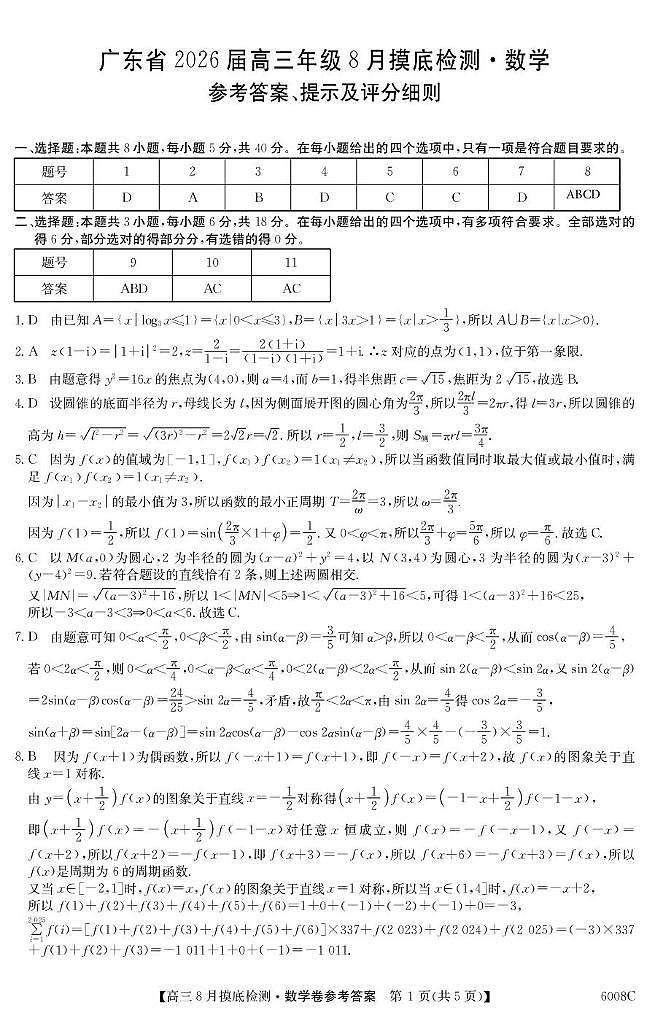 广东省 2026 届高三年级 8 月摸底检测·数学
参考答案、提示及评分细则
一、选择题:本题共 8 小题,每小题 5 分,共 40 分。在每小题给出的四个选项中,只有一项是符合题目要求的。
题号 1 2 3 4 5 6 7 8
答案 D A B D C C D ABCD
二、选择题:本题共 3 小题,每小题 6 分,共 18 分。在每小题给出的四个选项中,有多项符合要求。全部选对的
得 6 分,部分选对的得部分分,有选错的得 0 分。
题号 9 10 11
答案 ABD AC AC
1. D 由已知 A={x|log₃x≤1}={x|0<x≤3},B={x|3x>1}={x|x>1/3},所以 A∪B={x|x>0}.
2. A z(1-i)=|1+i|²=2,z=2/(1-i)=2(1+i)/((1-i)(1+i))=1+i.∴z 对应的点为(1,1),位于第一象限.
3. B 由题意得 y²=16x 的焦点为(4,0),则 a=4,而 b=1,得半焦距 c=√15,焦距为 2√15,故选 B.
4. D 设圆锥的底面半径为 r,母线长为 l,因为侧面展开图的圆心角为2π/3,所以2πl/3=2πr,得 l=3r,所以圆锥的
高为 h=√(l²-r²)=√((3r)²-r²)=2√2r=√2.所以 r=1/2,l=3/2,则 S侧=πrl=3π/4.
5. C 因为 f(x)的值域为[-1,1],f(x₁)f(x₂)=1(x₁≠x₂),所以当函数值同时取最大值或最小值时,满
足 f(x₁)f(x₂)=1(x₁≠x₂).
因为|x₁-x₂|的最小值为 3,所以函数的最小正周期 T=2π/ω=3,所以 ω=2π/3.
因为 f(1)=1/2,所以 f(1)=sin(2π/3×1+φ)=1/2.又 0<φ<π,所以2π/3+φ=5π/6,所以 φ=π/6.故选 C.
6. C 以 M(a,0)为圆心,2 为半径的圆为(x-a)²+y²=4,以 N(3,4)为圆心,3 为半径的圆为(x-3)²+
(y-4)²=9.若符合题设的直线恰有 2 条,则上述两圆相交.
又|MN|=√((a-3)²+16),所以 1<|MN|<5⇒1<√((a-3)²+16)<5,可得 1<(a-3)²+16<25,
所以-3<a-3<3⇒0<a<6.故选 C.
7. D 由题意可知 0<α<π/2,0<β<π/2,由 sin(α-β)=3/5可知 α>β,所以 0<α-β<π/2,从而 cos(α-β)=4/5,
若 0<2α<π/2,则 0<α<π/4,0<α-β<α<π/4,0<2(α-β)<2α<π/2,从而 sin 2(α-β)<sin 2α,又 sin 2(α-β)
=2sin(α-β)cos(α-β)=24/25>sin 2α=4/5,矛盾,故π/2<2α<π,由 sin 2α=4/5得 cos 2α=-3/5,
sin(α+β)=sin[2α-(α-β)]=sin 2αcos(α-β)-cos 2αsin(α-β)=4/5×4/5-(-3/5)×3/5=1.
8. B 因为 f(x+1)为偶函数,所以 f(-x+1)=f(x+1),即 f(-x)=f(x+2),故 f(x)的图象关于直
线 x=1 对称.
由 y=(x+1/2)f(x)的图象关于直线 x=-1/2对称得(x+1/2)f(x)=(-1-x+1/2)f(-1-x),
即(x+1/2)f(x)=-(x+1/2)f(-1-x)对任意 x 恒成立,则 f(x)=-f(-x-1),又 f(-x)=
f(x+2),所以f(x+2)=-f(x-1),即 f(x+3)=-f(x),所以 f(x+6)=-f(x+3)=f(x),所以
f(x)是周期为 6 的周期函数.
又当 x∈[-2,1]时,f(x)=x,f(x)的图象关于直线 x=1 对称,所以当 x∈(1,4]时,f(x)=-x+2,
所以 f(1)+f(2)+f(3)+f(4)+f(5)+f(6)=1+0+(-1)+(-2)+(-1)+0=-3,
2 025∑i=1 f(i)=[f(1)+f(2)+f(3)+f(4)+f(5)+f(6)]×337+f(2 023)+f(2 024)+f(2 025)=(-3)×337
+f(1)+f(2)+f(3)=-1 011+1+0+(-1)=-1 011.
【高三 8 月摸底检测·数学卷参考答案 第 1 页(共 5 页)】 6008C